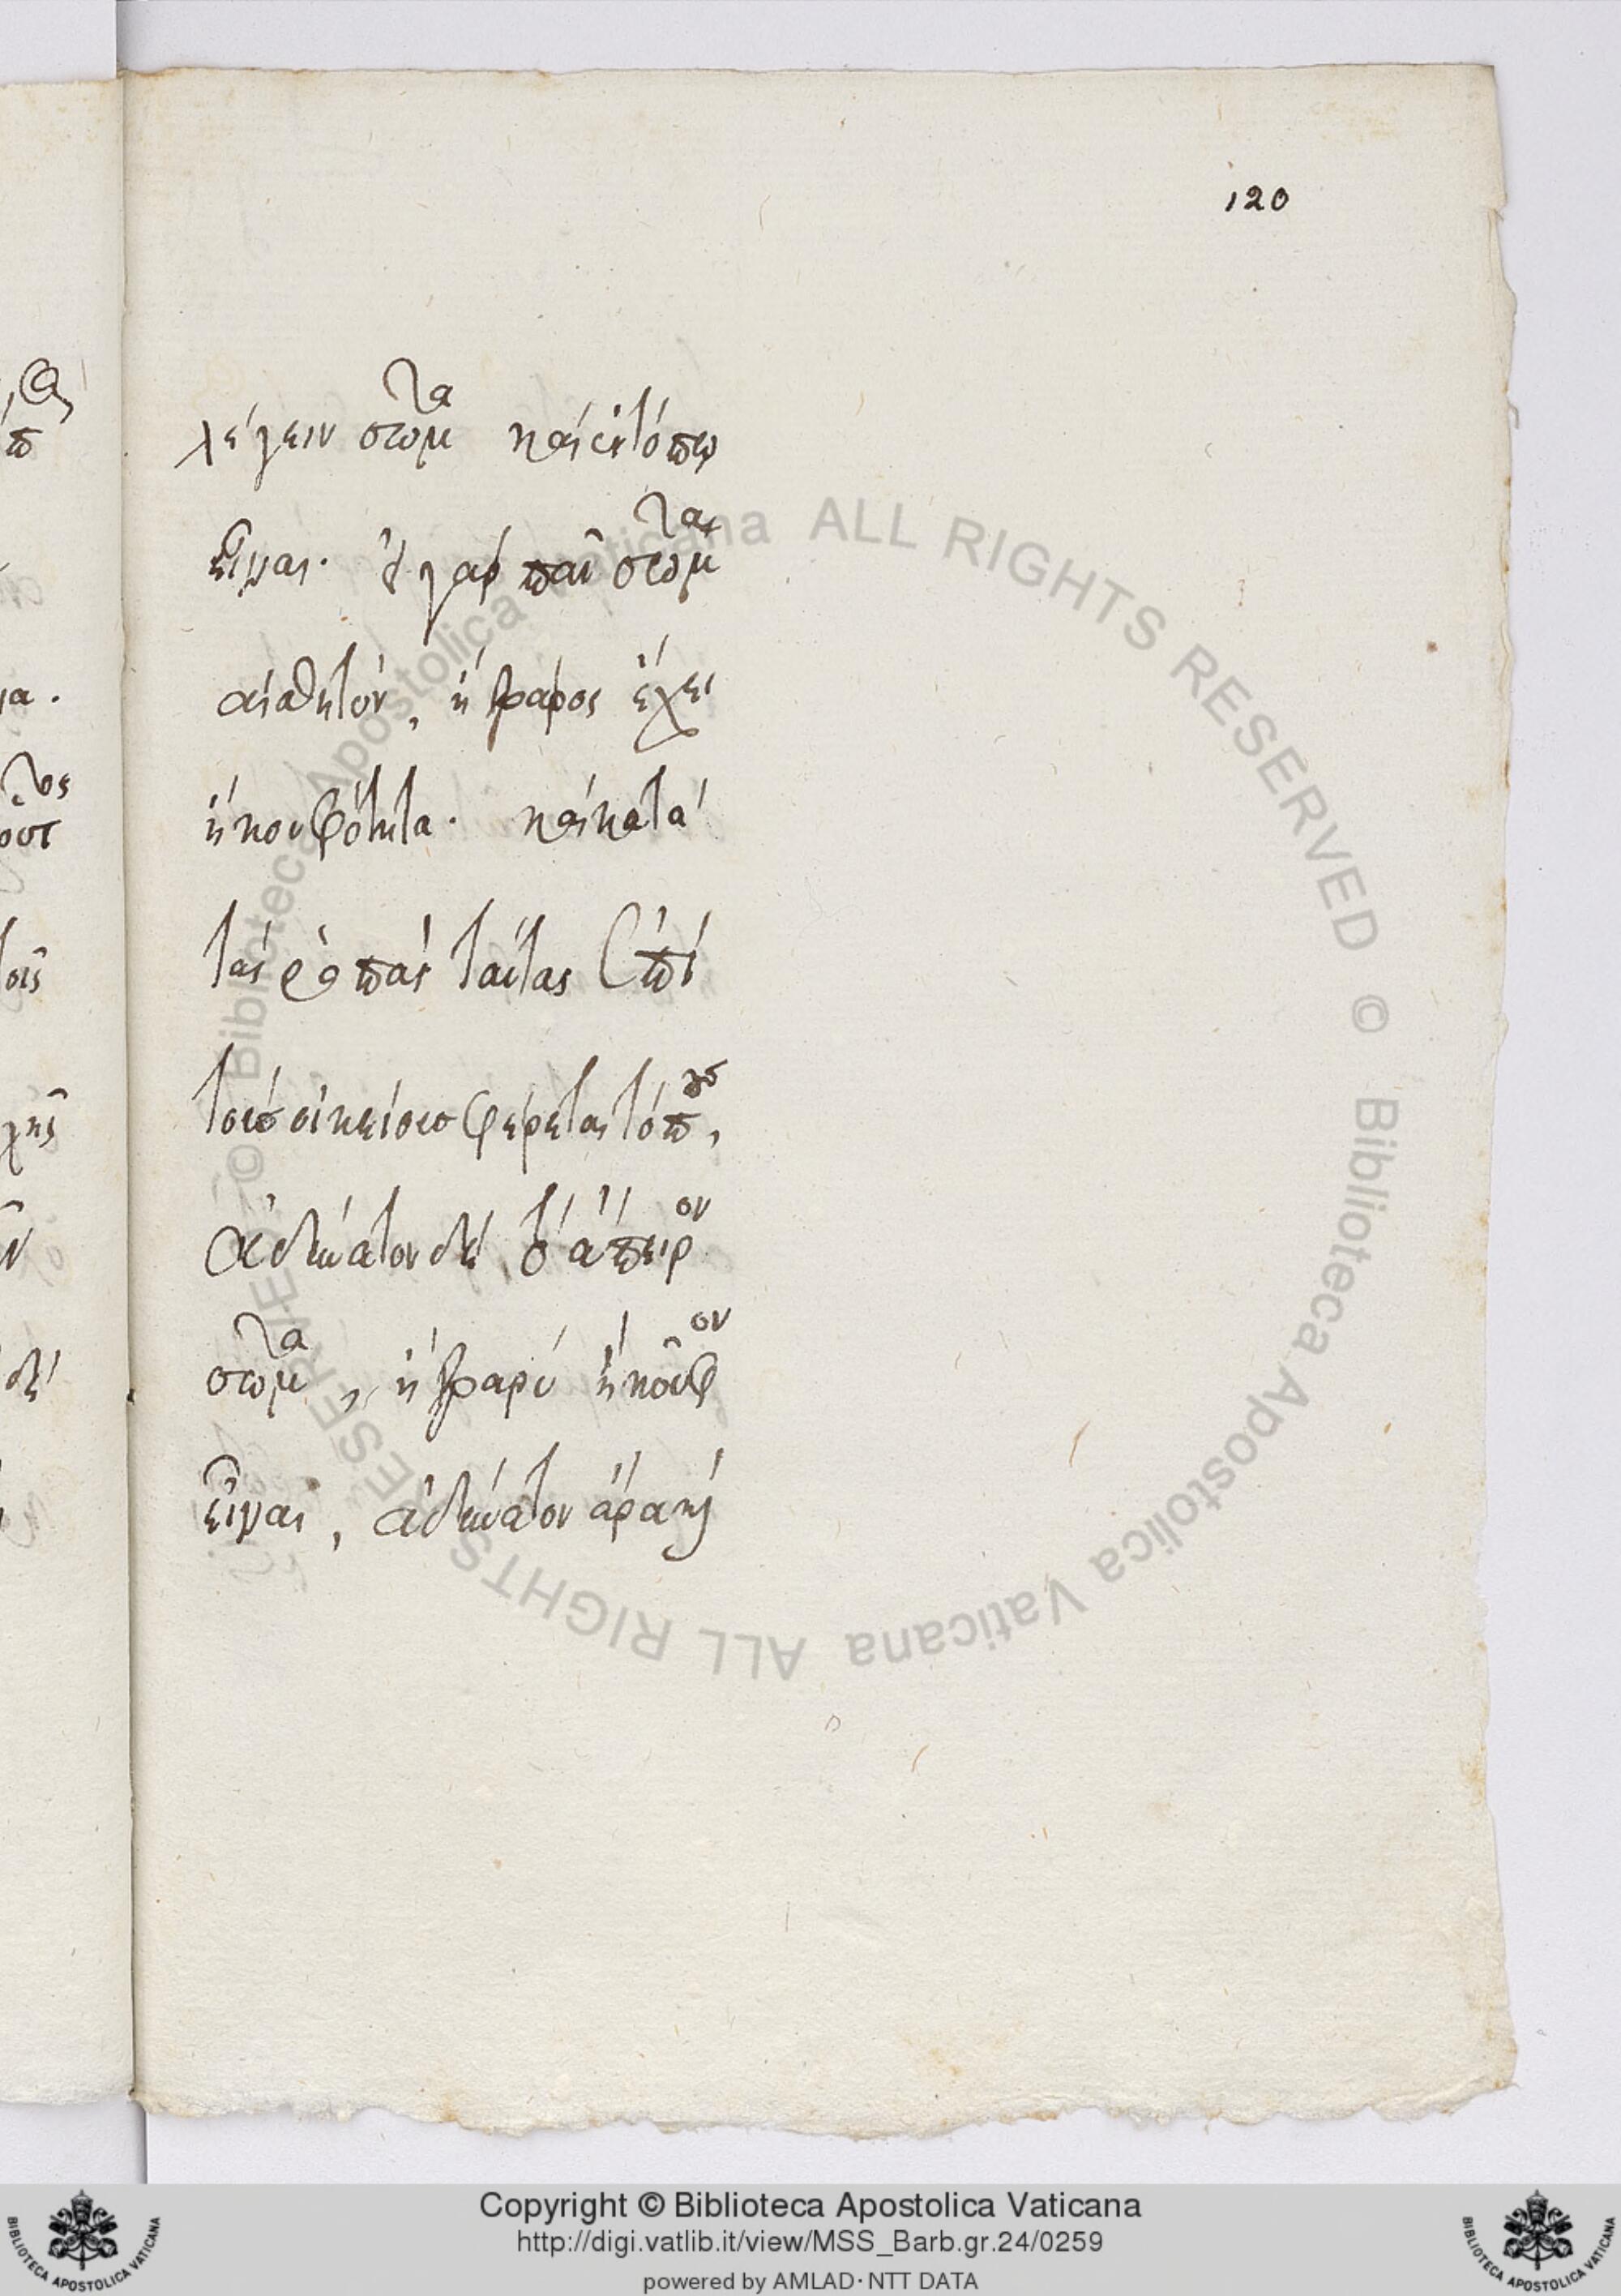 120
λέγειν σῶμα καὶ ἐν τόπω
εἶναι. εἰ γὰρ πᾶν σῶμα
αἰσθητόν, ἢ βάρος ἔχει
ἢ κουφότητα. καὶ κατὰ
τὰς ῥοπὰς ταύτας ἐπὶ
τοὺς οἰκείους φέρεται τόπους,
ἀδύνατον δὲ τὸ ἄπειρον
σῶμα, ἢ βαρὺ ἢ κοῦφον
εἶναι, ἀδύνατον ἄρα καὶ
© Biblioteca Apostolica Vaticana ALL RIGHTS RESERVED © Biblioteca Apostolica Vaticana ALL RIGHTS RESERVED
Copyright © Biblioteca Apostolica Vaticana
http://digi.vatlib.it/view/MSS_Barb.gr.24/0259
powered by AMLAD · NTT DATA
BIBLIOTECA APOSTOLICA VATICANA
BIBLIOTECA APOSTOLICA VATICANA